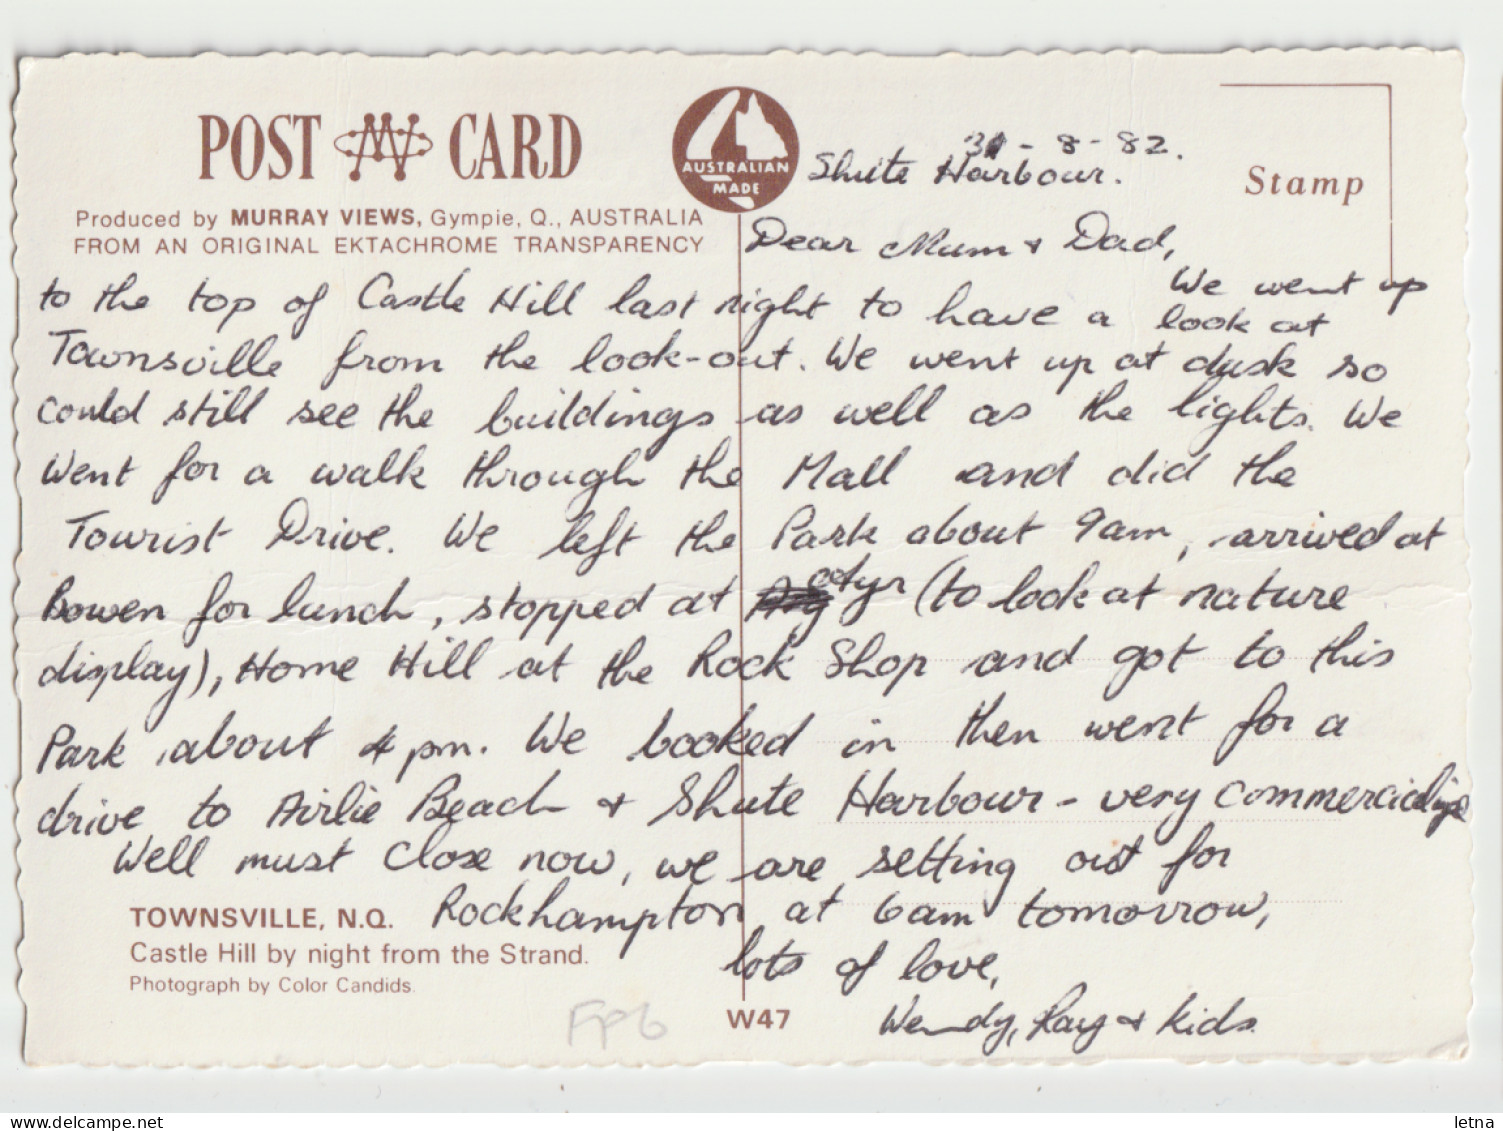 POST CARD
AUSTRALIAN
MADE
Produced by MURRAY VIEWS, Gympie, Q., AUSTRALIA
FROM AN ORIGINAL EKTACHROME TRANSPARENCY
Stamp
-8-82.
Shute Harbour.
Dear Mum + Dad,
We went up
to the top of Castle Hill last night to have a look at
Townsville from the look-out. We went up at dusk so
could still see the buildings as well as the lights. We
went for a walk through the Mall and did the
Tourist Drive. We left the Park about 9am, arrived at
Bowen for lunch, stopped at (to look at nature
display), Home Hill at the Rock Shop and got to this
Park about 4 pm. We booked in then went for a
drive to Airlie Beach + Shute Harbour - very commercialize
Well must close now, we are setting out for
Rockhampton at 6am tomorrow,
lots of love,
Wendy, Ray + kids.
TOWNSVILLE, N.Q.
Castle Hill by night from the Strand.
Photograph by Color Candids.
FP6
W47
www.delcampe.net
letna